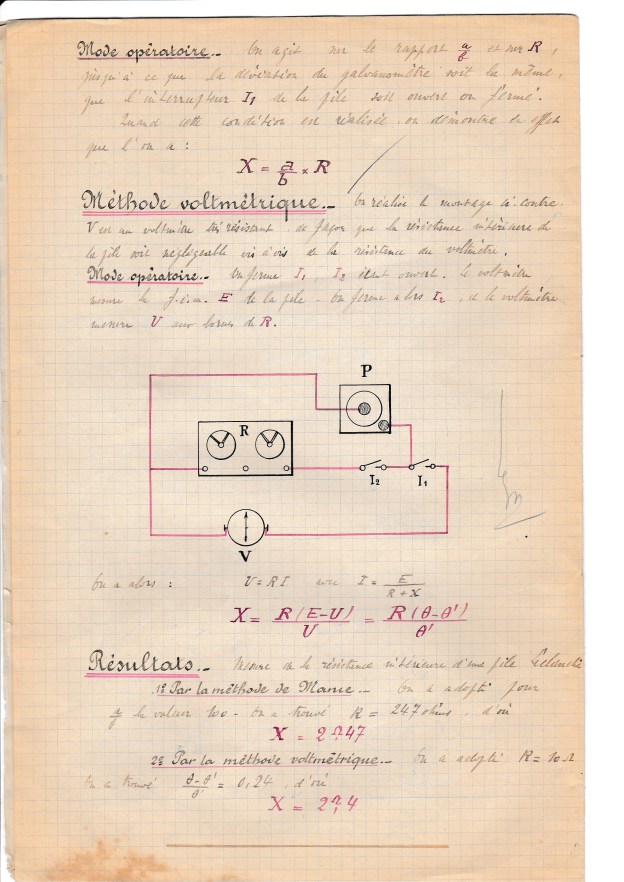 Mode opératoire._ On agit sur le rapport a/b et sur R,
jusqu'à ce que la déviation du galvanomètre soit la même,
que l'interrupteur I1 de la pile soit ouvert ou fermé.
Quand cette condition est réalisée, on démontre en effet
que l'on a :
X = a/b × R
Méthode voltmétrique._ On réalise le montage ci contre.
V est un voltmètre très résistant, de façon que la résistance intérieure de
la pile soit négligeable vis à vis de la résistance du voltmètre.
Mode opératoire._ On ferme I1, I2 étant ouvert. Le voltmètre
mesure la f.e.m. E de la pile - On ferme alors I2, et le voltmètre
mesure U aux bornes de R.
P
R
I2 I1
V
On a alors : U = RI avec I = E/(R+X)
X = R(E-U)/U = R(θ-θ')/θ'
Résultats._ Mesure de la résistance intérieure d'une pile Leclanché
1º Par la méthode de Mance._ On a adopté pour
la valeur 100 - On a trouvé R = 247 ohms, d'où
X = 2Ω,47
2º Par la méthode voltmétrique._ On a adopté R = 10 Ω
On a trouvé (θ-θ')/θ' = 0,24, d'où
X = 2Ω,4